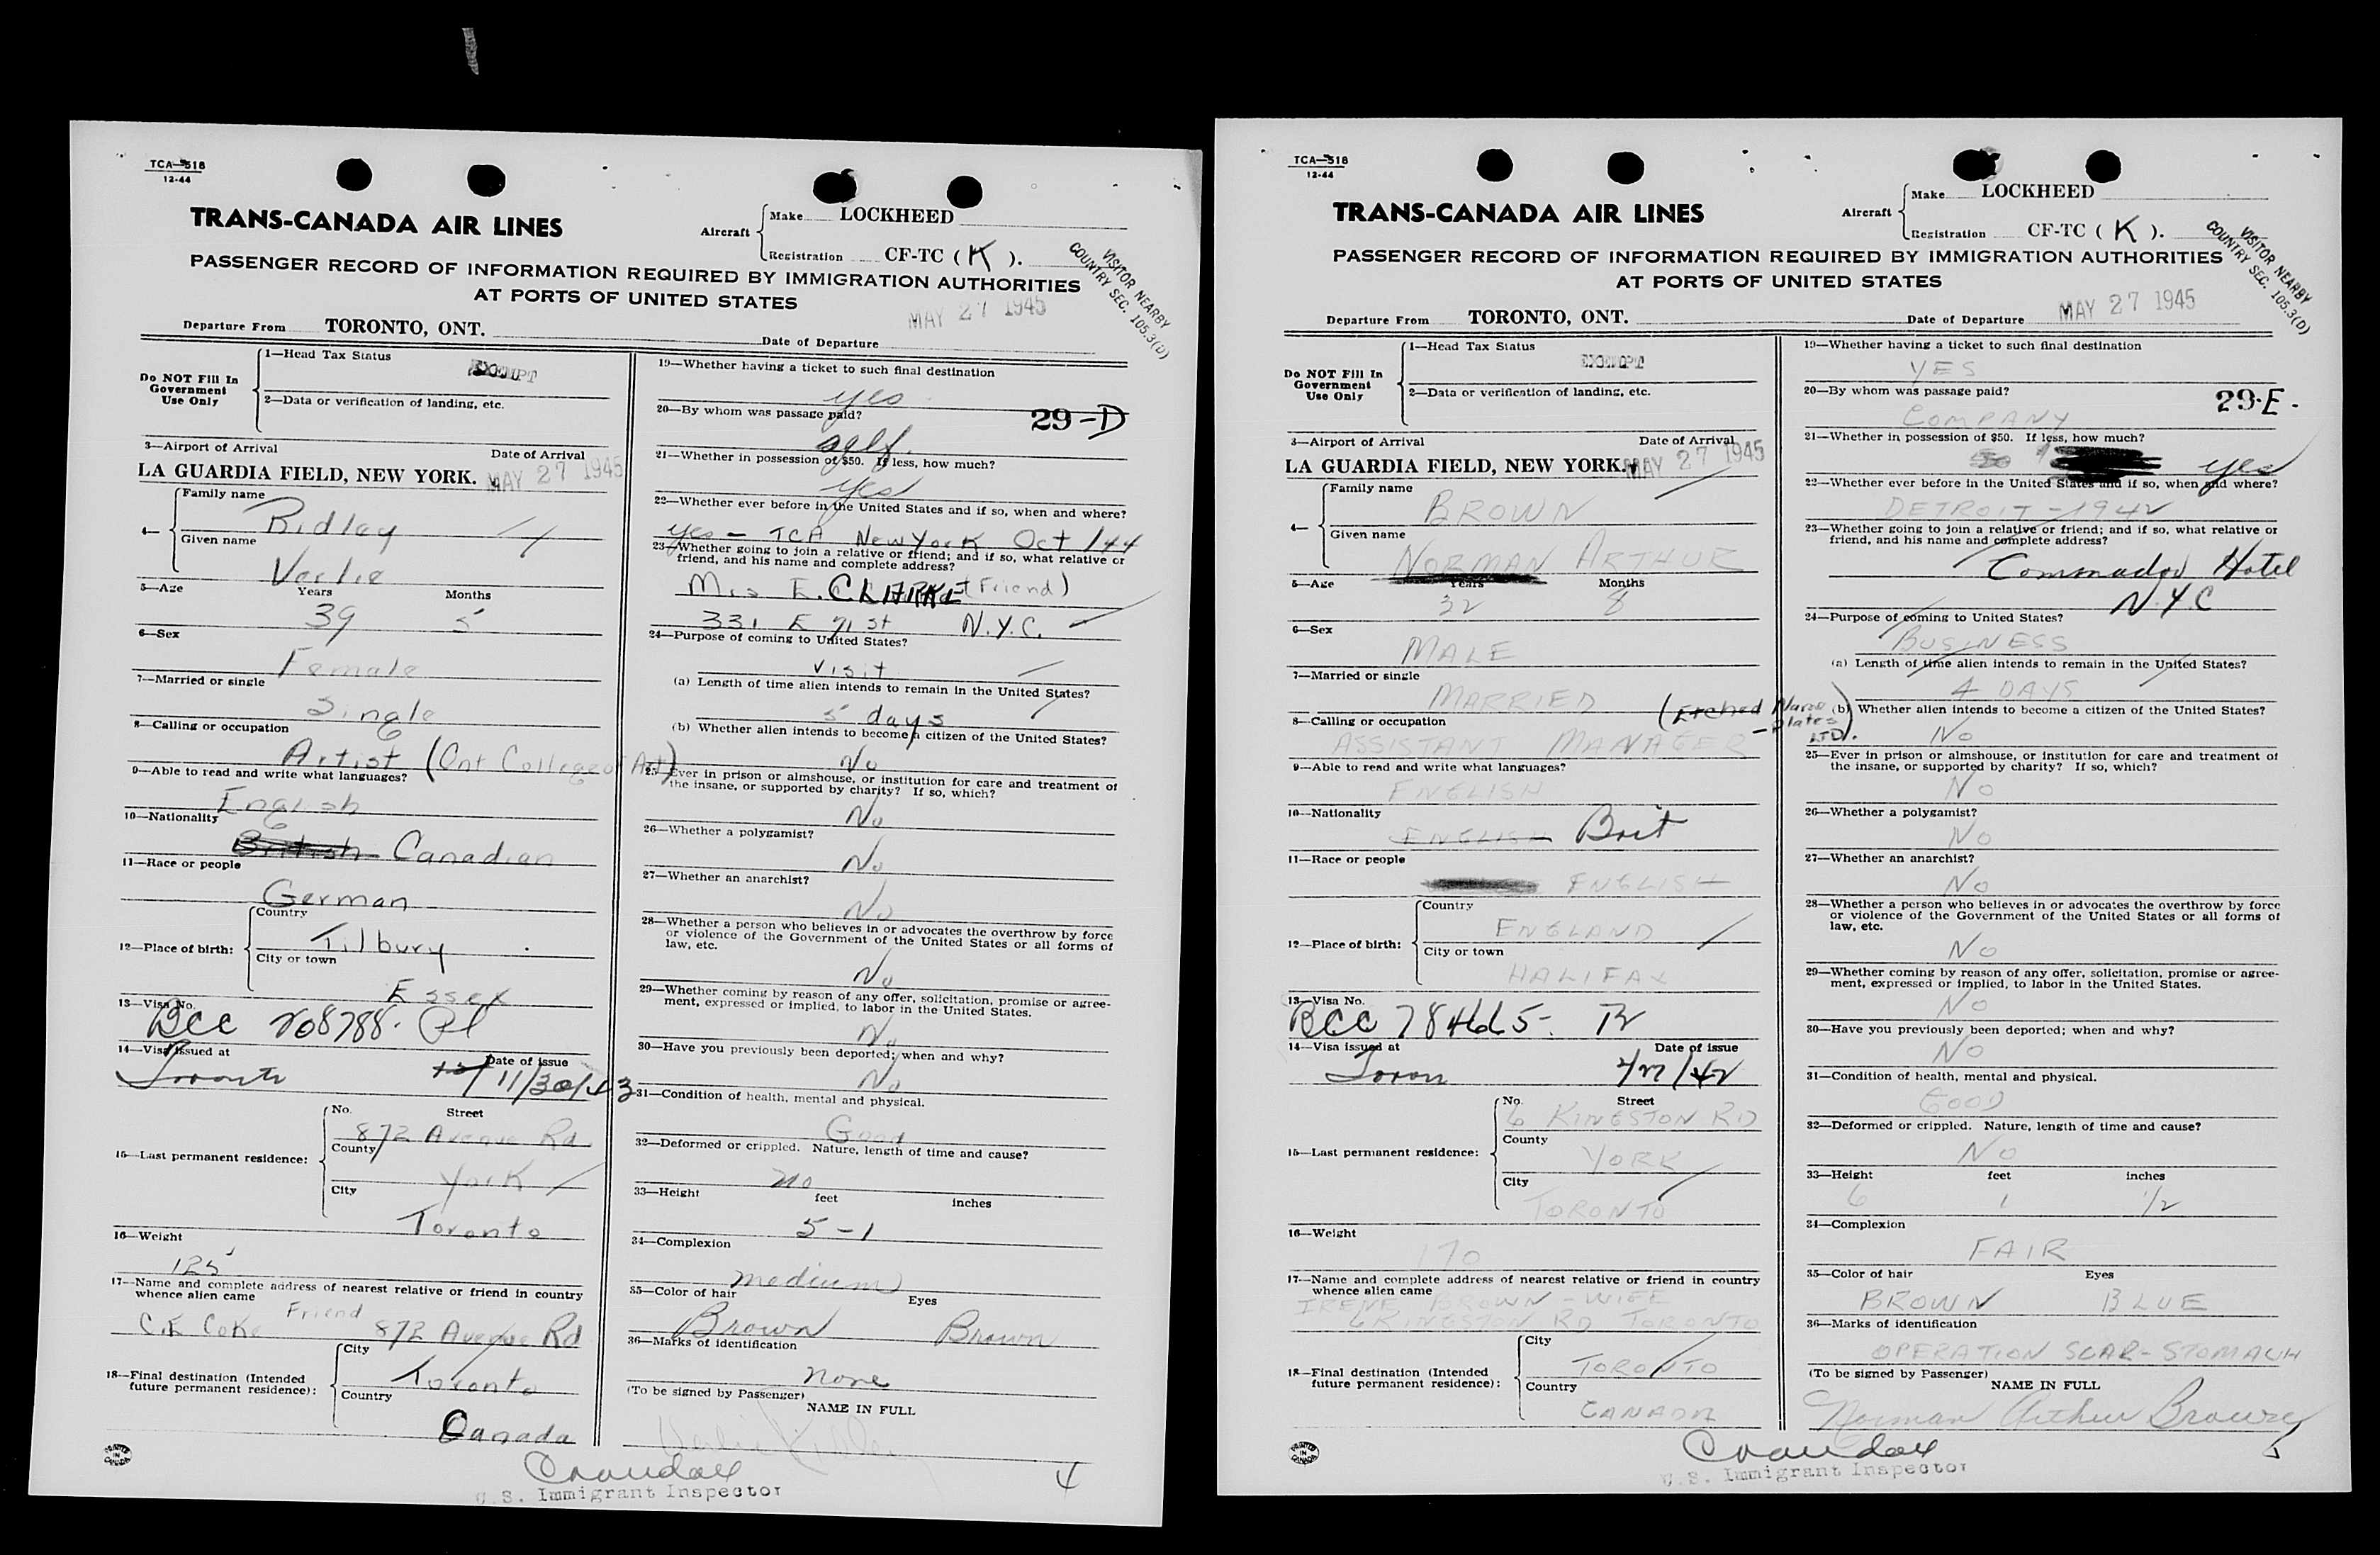 TCA—518
12-44
TRANS-CANADA AIR LINES
Aircraft
Make LOCKHEED
Registration CF-TC ( K ).
PASSENGER RECORD OF INFORMATION REQUIRED BY IMMIGRATION AUTHORITIES
AT PORTS OF UNITED STATES
VISITOR NEARBY
COUNTRY SEC. 105.3(D)
MAY 27 1945
Departure From TORONTO, ONT. Date of Departure
Do NOT Fill In
Government
Use Only
1—Head Tax Status
EXEMPT
2—Data or verification of landing, etc.
3—Airport of Arrival Date of Arrival
LA GUARDIA FIELD, NEW YORK. MAY 27 1945
4—
Family name
Ridley
Given name
Verlie
5—Age Years Months
39 5
6—Sex
Female
7—Married or single
Single
8—Calling or occupation
Artist (Ont College of Art)
9—Able to read and write what languages?
English
10—Nationality
British Canadian
11—Race or people
German
12—Place of birth:
Country
Tilbury
City or town
Essex
13—Visa No.
BCC 208788.
14—Visa issued at Date of issue
Toronto 11/30/43
15—Last permanent residence:
No. Street
872 Avenue Rd
County
York
City
Toronto
16—Weight
125
17—Name and complete address of nearest relative or friend in country
whence alien came
Friend
C.E. Coke 872 Avenue Rd
18—Final destination (Intended
future permanent residence):
City
Toronto
Country
Canada
PRINTED
IN
CANADA
19—Whether having a ticket to such final destination
yes
20—By whom was passage paid?
29-D
self.
21—Whether in possession of $50. If less, how much?
yes
22—Whether ever before in the United States and if so, when and where?
yes — TCA New York Oct /44
23—Whether going to join a relative or friend; and if so, what relative or
friend, and his name and complete address?
Mrs E. CLARKE (Friend)
331 E 71 st N.Y.C.
24—Purpose of coming to United States?
visit
(a) Length of time alien intends to remain in the United States?
5 days
(b) Whether alien intends to become a citizen of the United States?
No
25—Ever in prison or almshouse, or institution for care and treatment of
the insane, or supported by charity? If so, which?
No
26—Whether a polygamist?
No
27—Whether an anarchist?
No
28—Whether a person who believes in or advocates the overthrow by force
or violence of the Government of the United States or all forms of
law, etc.
No
29—Whether coming by reason of any offer, solicitation, promise or agree-
ment, expressed or implied, to labor in the United States.
No
30—Have you previously been deported; when and why?
No
31—Condition of health, mental and physical.
Good
32—Deformed or crippled. Nature, length of time and cause?
no
33—Height feet inches
5-1
34—Complexion
medium
35—Color of hair Eyes
Brown Brown
36—Marks of identification
none
(To be signed by Passenger)
NAME IN FULL
Verlie Ridley
Crandall
U.S. Immigrant Inspector
4
TCA—518
12-44
TRANS-CANADA AIR LINES
Aircraft
Make LOCKHEED
Registration CF-TC ( K ).
PASSENGER RECORD OF INFORMATION REQUIRED BY IMMIGRATION AUTHORITIES
AT PORTS OF UNITED STATES
VISITOR NEARBY
COUNTRY SEC. 105.3(D)
Departure From TORONTO, ONT. Date of Departure MAY 27 1945
Do NOT Fill In
Government
Use Only
1—Head Tax Status
EXEMPT
2—Data or verification of landing, etc.
3—Airport of Arrival Date of Arrival
LA GUARDIA FIELD, NEW YORK. MAY 27 1945
4—
Family name
BROWN
Given name
NORMAN ARTHUR
5—Age Years Months
32 8
6—Sex
MALE
7—Married or single
MARRIED
8—Calling or occupation
(Etched Name Plates LTD).
ASSISTANT MANAGER
9—Able to read and write what languages?
ENGLISH
10—Nationality
ENGLISH Brit
11—Race or people
ENGLISH
12—Place of birth:
Country
ENGLAND
City or town
HALIFAX
13—Visa No.
BCC 784665-
14—Visa issued at Date of issue
Toron /42
15—Last permanent residence:
No. Street
6 KINGSTON RD
County
YORK
City
TORONTO
16—Weight
170
17—Name and complete address of nearest relative or friend in country
whence alien came
IRENE BROWN - WIFE
6 KINGSTON RD TORONTO
18—Final destination (Intended
future permanent residence):
City
TORONTO
Country
CANADA
PRINTED
IN
CANADA
19—Whether having a ticket to such final destination
YES
20—By whom was passage paid?
29-E-
COMPANY
21—Whether in possession of $50. If less, how much?
yes
22—Whether ever before in the United States and if so, when and where?
DETROIT - 1942
23—Whether going to join a relative or friend; and if so, what relative or
friend, and his name and complete address?
Commador Hotel
N.Y.C
24—Purpose of coming to United States?
BUSINESS
(a) Length of time alien intends to remain in the United States?
4 DAYS
(b) Whether alien intends to become a citizen of the United States?
No
25—Ever in prison or almshouse, or institution for care and treatment of
the insane, or supported by charity? If so, which?
No
26—Whether a polygamist?
No
27—Whether an anarchist?
No
28—Whether a person who believes in or advocates the overthrow by force
or violence of the Government of the United States or all forms of
law, etc.
No
29—Whether coming by reason of any offer, solicitation, promise or agree-
ment, expressed or implied, to labor in the United States.
No
30—Have you previously been deported; when and why?
No
31—Condition of health, mental and physical.
GOOD
32—Deformed or crippled. Nature, length of time and cause?
No
33—Height feet inches
6 1 1/2
34—Complexion
FAIR
35—Color of hair Eyes
BROWN BLUE
36—Marks of identification
OPERATION SCAR-STOMACH
(To be signed by Passenger)
NAME IN FULL
Norman Arthur Brown
Crandall
U.S. Immigrant Inspector